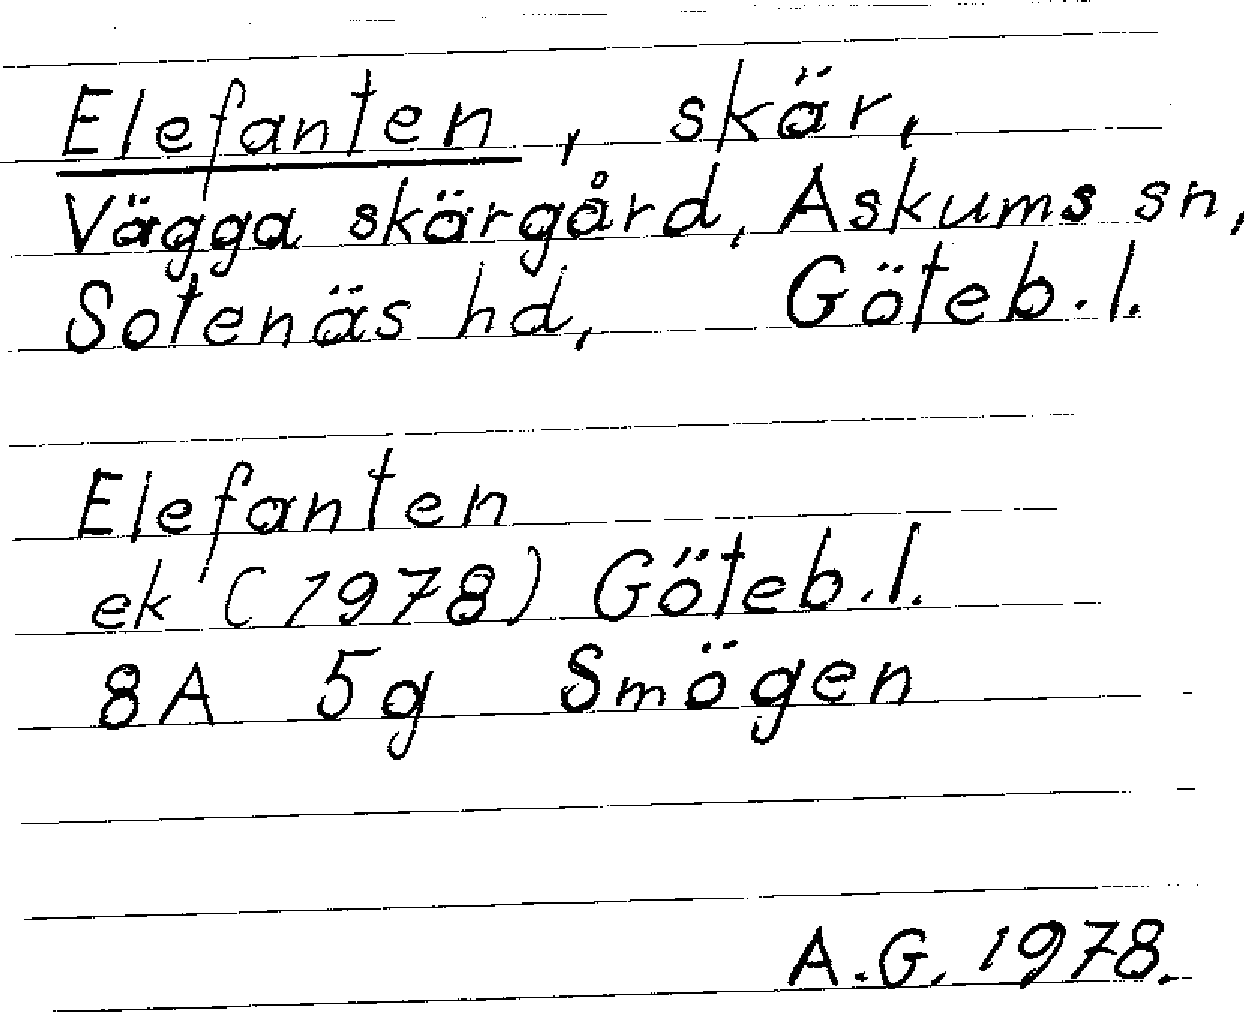 Elefanten, skär,
Vägga skärgård, Askums sn,
Sotenäs hd, Göteb.l.
Elefanten
ek (1978) Göteb.l.
8A 5g Smögen
A.G. 1978.